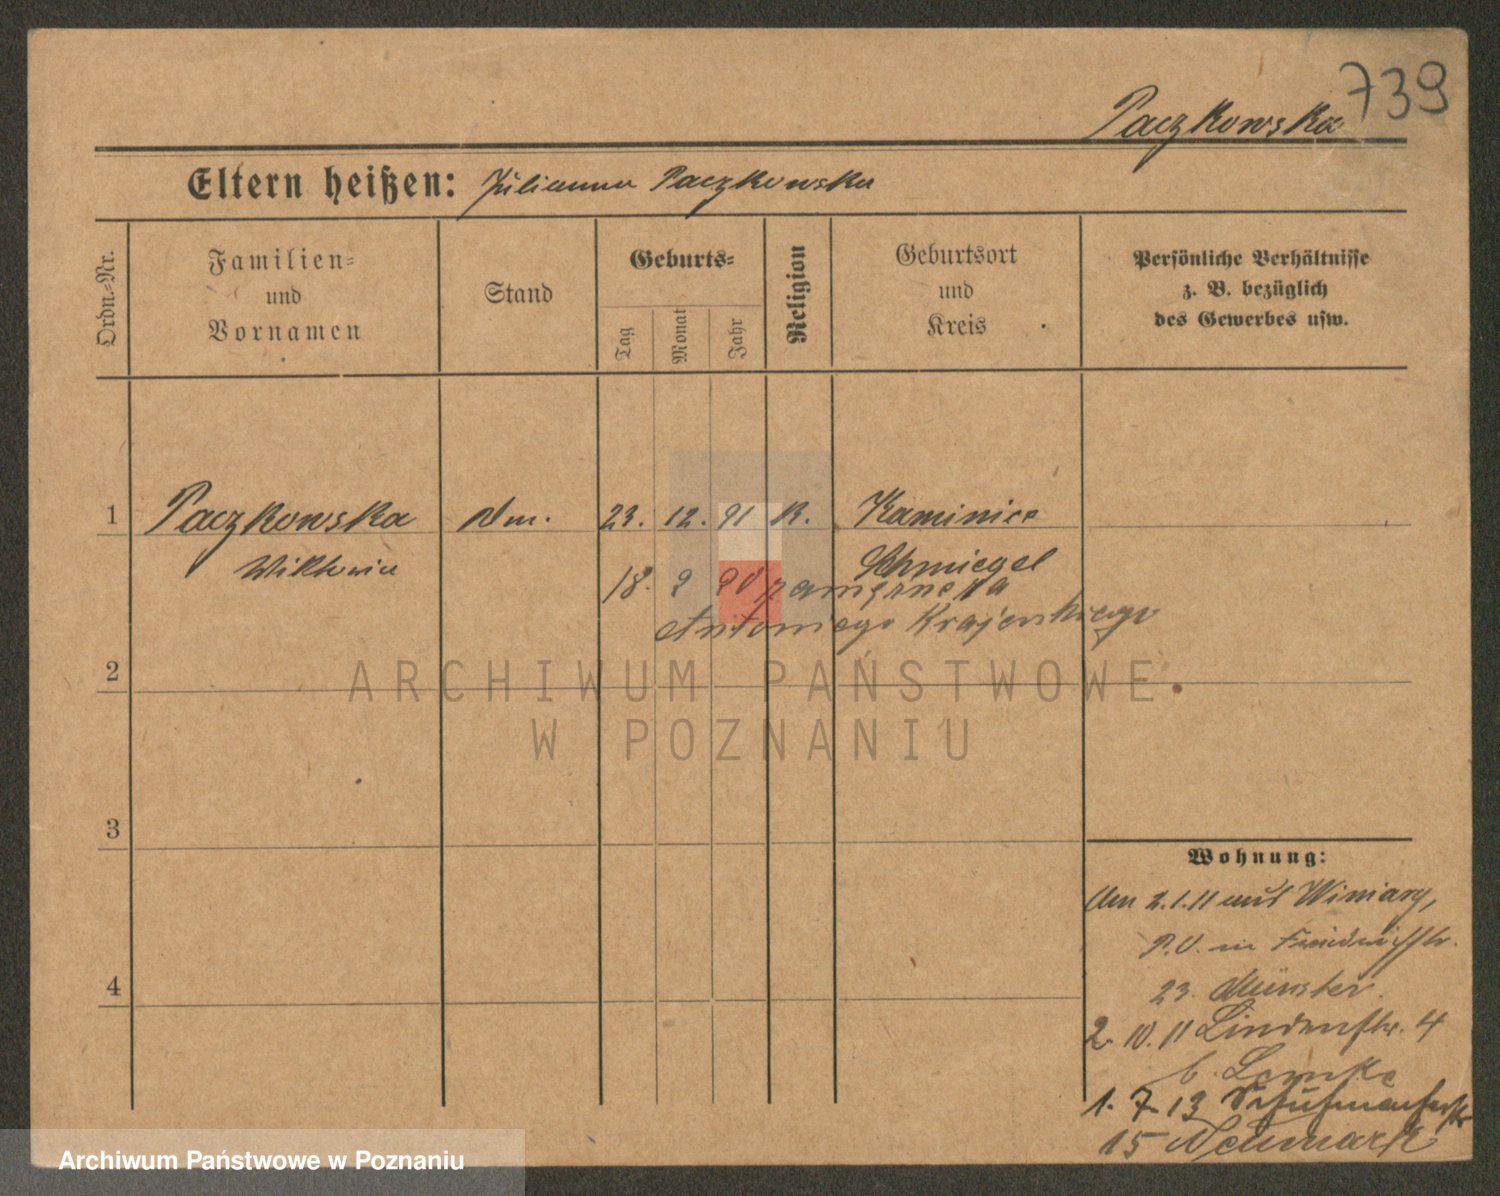 739
Paczkowska
Eltern heißen: Julianna Paczkowska
Ordn.-Nr.
Familien-
und
Vornamen
Stand
Geburts-
Tag
Monat
Jahr
Religion
Geburtsort
und
Kreis
Persönliche Verhältnisse
z. B. bezüglich
des Gewerbes usw.
1 Paczkowska Dm. 23. 12. 91 K. Kaminiec
Wiktoria Schmiegel
18. 2 20 zamężna za
Antoniego Krajewskiego
2
ARCHIWUM PAŃSTWOWE
W POZNANIU
3
4
Wohnung:
Am 2.1.11 aus Winiary,
P.V. in Friedrichstr.
23. Münster.
2. 10. 11 Lindenstr. 4
b. Lemke
1. 7. 13
15 Neumark
Archiwum Państwowe w Poznaniu